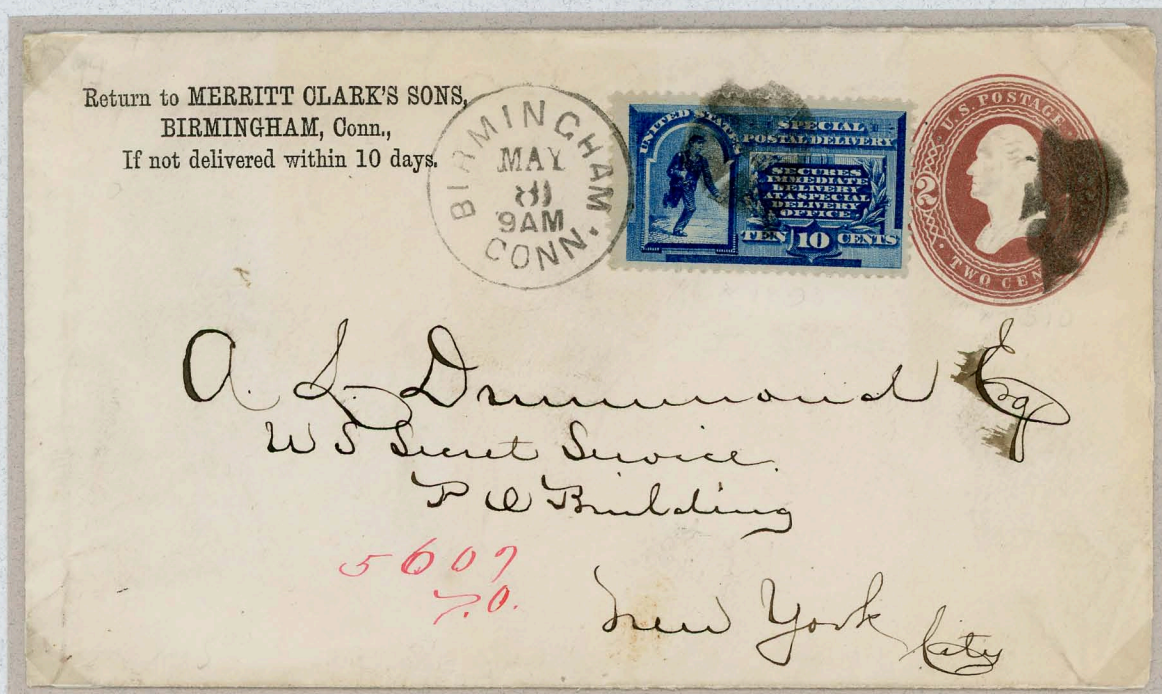 Return to MERRITT CLARK'S SONS,
BIRMINGHAM, Conn.,
If not delivered within 10 days.
BIRMINGHAM
MAY
9AM
CONN.
UNITED STATES
SPECIAL
POSTAL DELIVERY
SECURES
IMMEDIATE
DELIVERY
AT A SPECIAL
DELIVERY
OFFICE.
TEN 10 CENTS
U.S. POSTAGE
2
TWO CEN
A. L. Drummond Esq
U S Secret Service.
P O Building
5607
New York
City